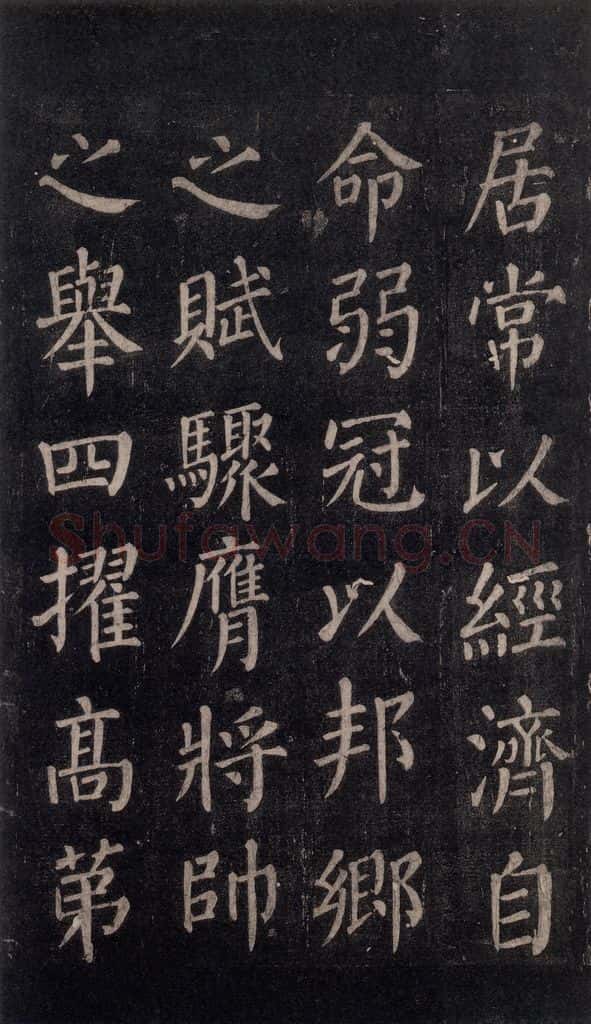 居常以經濟自
命弱冠以邦鄉
之賦驟膺將帥
之舉四擢高第
Shufawang.CN